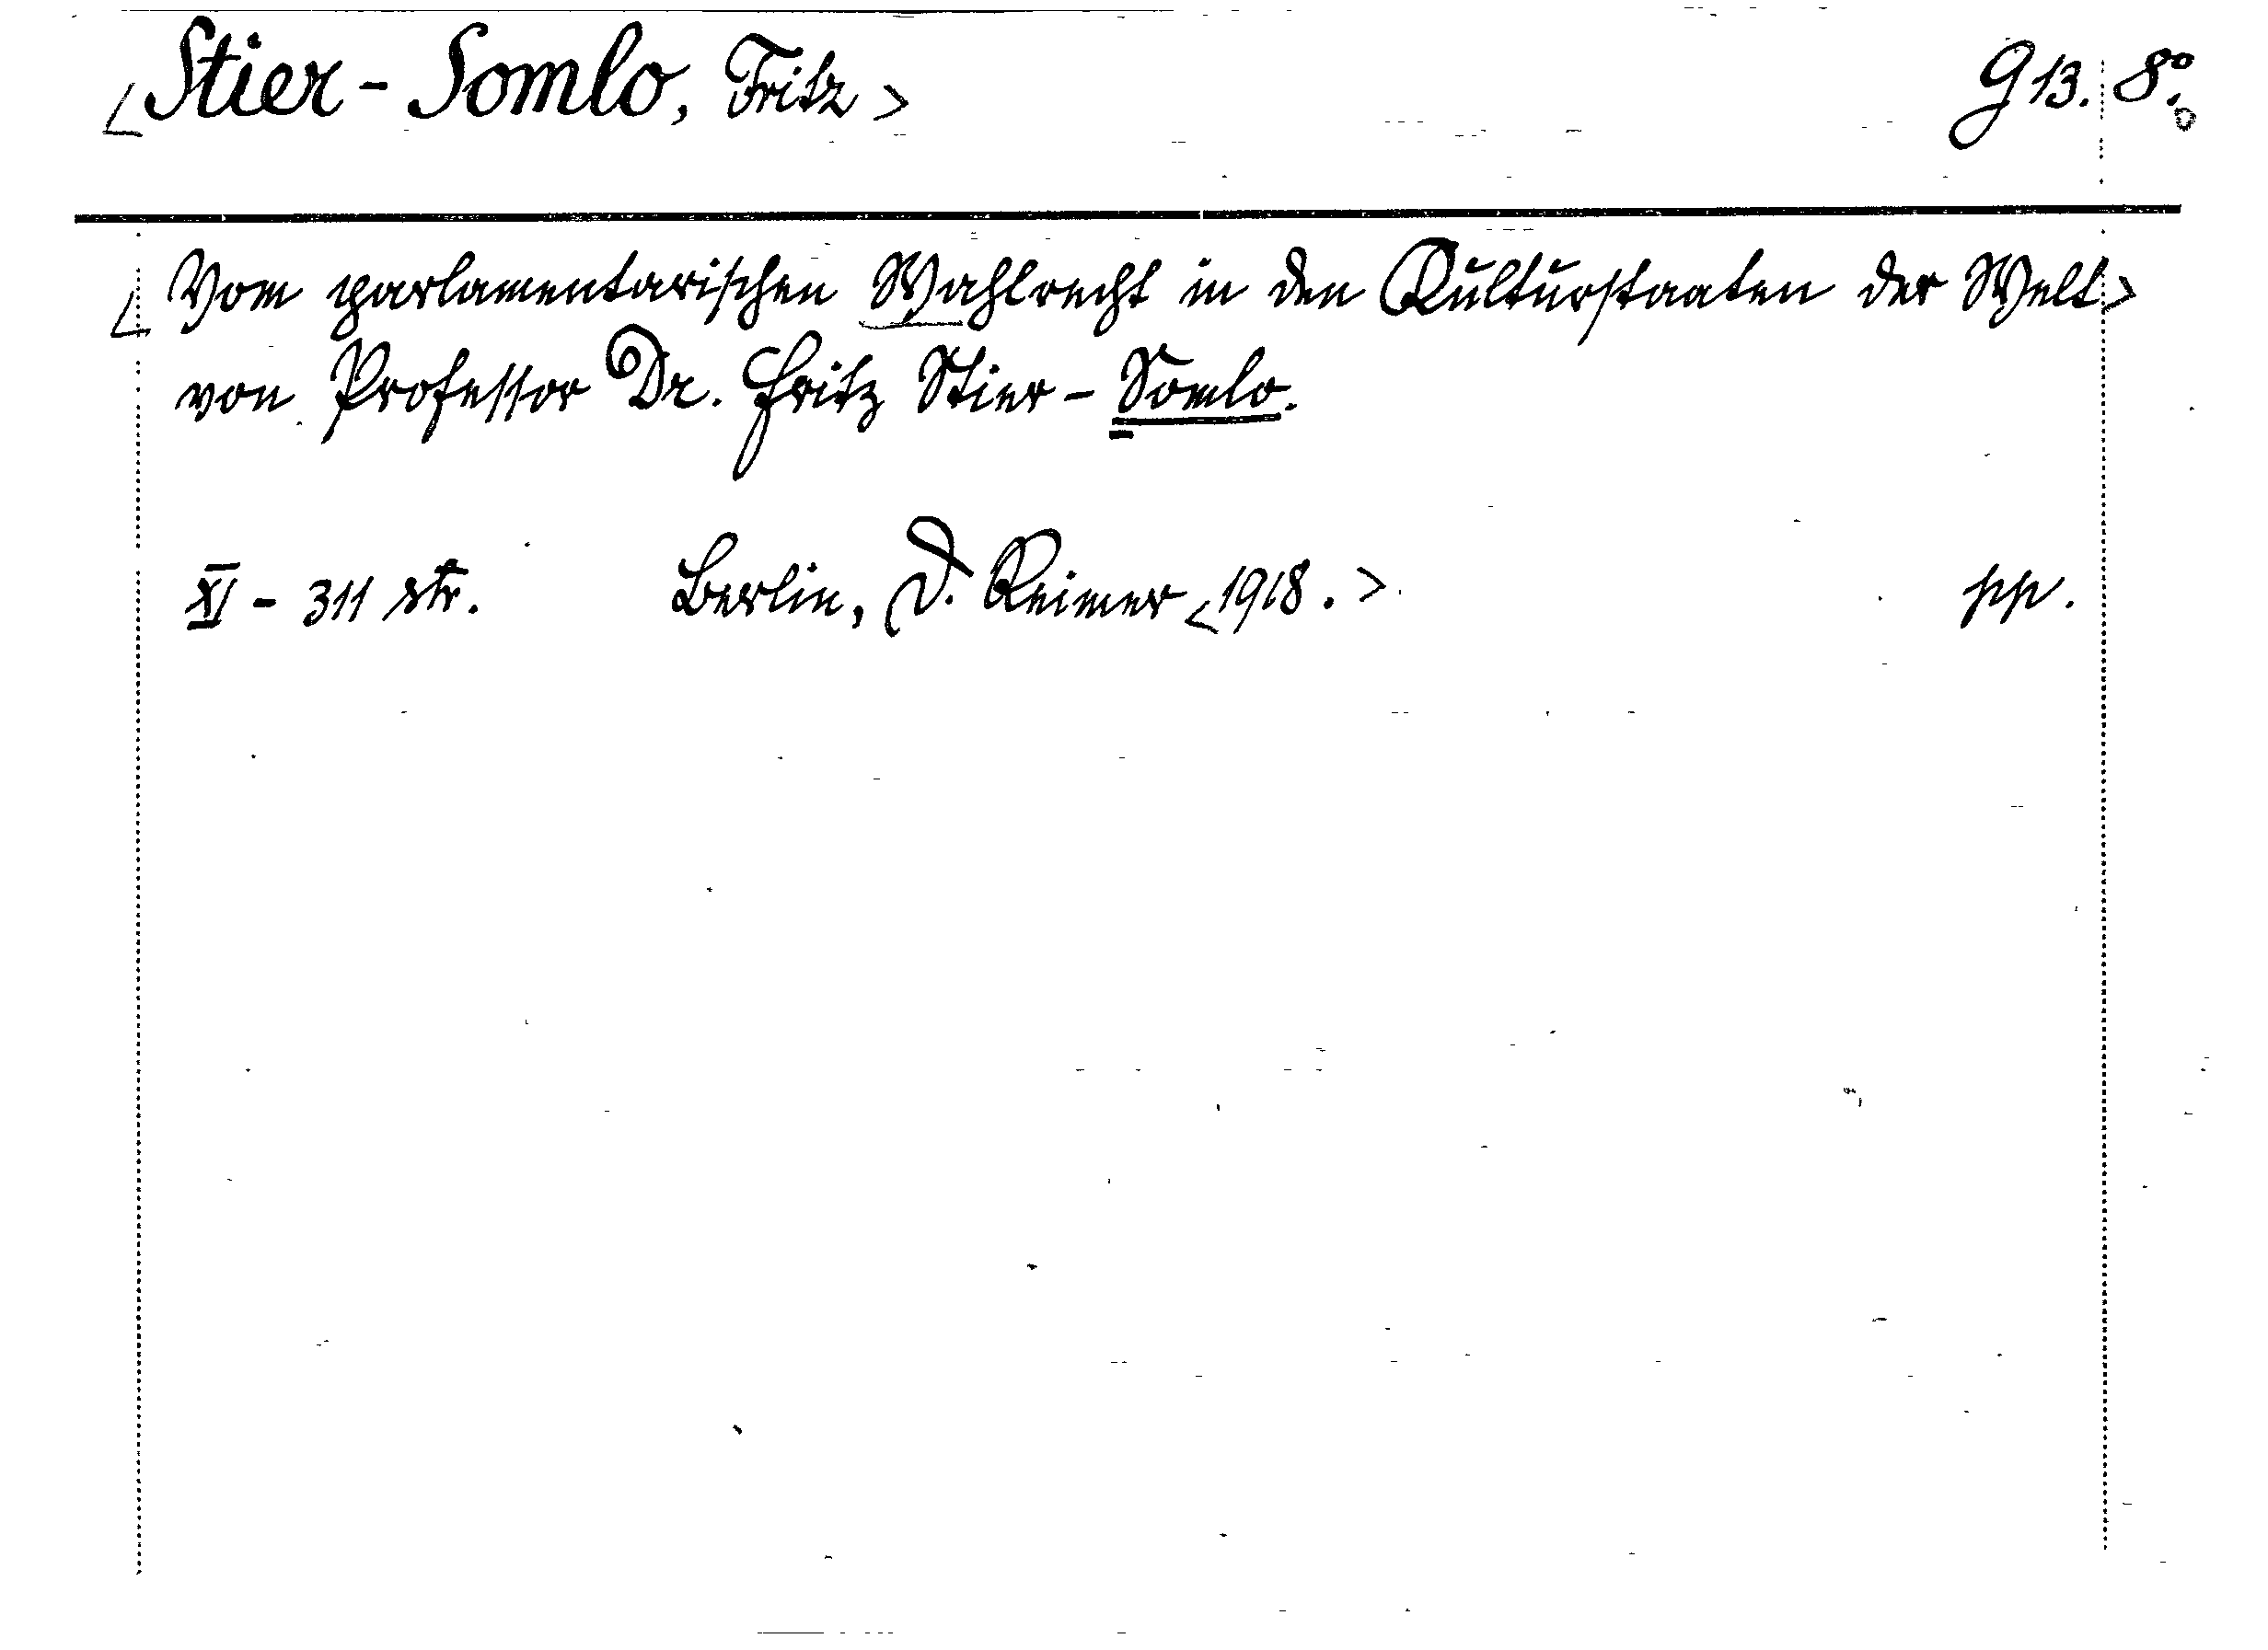 <Stier-Somlo, Fritz> G 13. 8º.
<Vom parlamentarischen Wahlrecht in den Kulturstaaten der Welt>
von Professor Dr. Fritz Stier-Somlo.
XI - 311 str. Berlin, D. Reimer <1918.> pp.